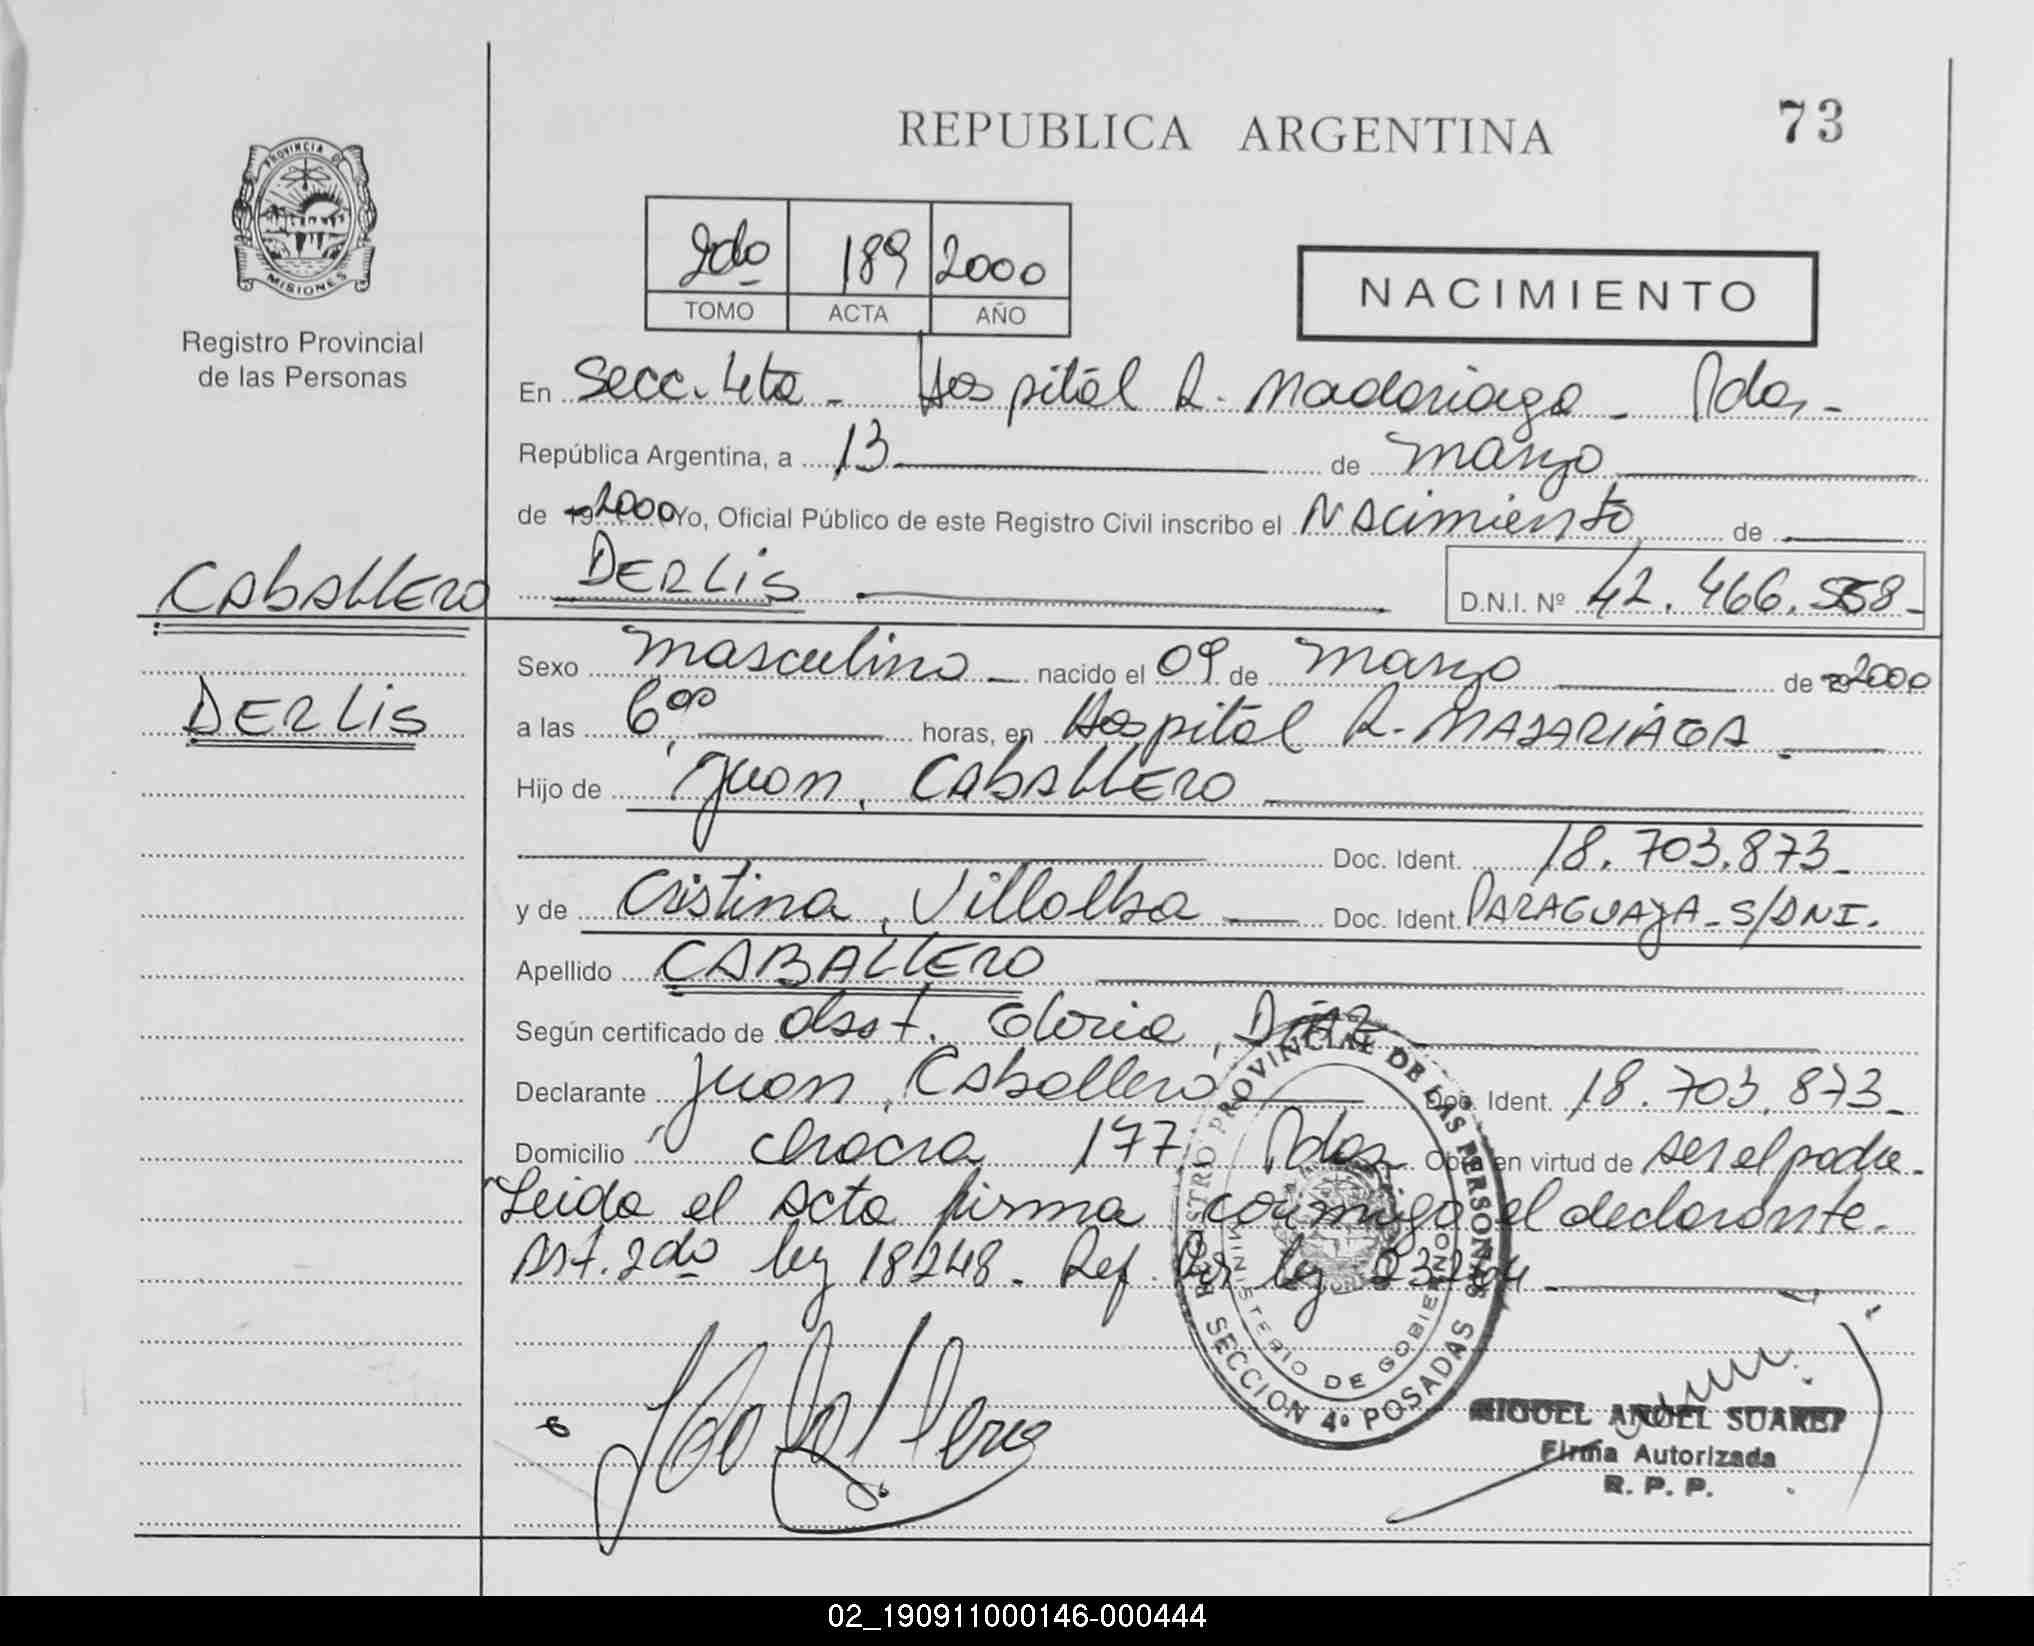 REPUBLICA ARGENTINA
73
PROVINCIA DE
MISIONES
Registro Provincial
de las Personas
2do 189 2000
TOMO ACTA AÑO
NACIMIENTO
En Secc. 4ta - Hospital R. Madariaga - Pdas -
República Argentina, a 13 de marzo
de 19 2000 Yo, Oficial Público de este Registro Civil inscribo el Nacimiento de
CABALLERO
DERLIS
DERLIS D.N.I. Nº 42.466.558-
Sexo masculino nacido el 09 de marzo de 2000
a las 6,00 horas, en Hospital R. MADARIAGA -
Hijo de Juan, CABALLERO
Doc. Ident. 18.703.873-
y de Cristina, Villalba Doc. Ident. PARAGUAYA - S/DNI.
Apellido CABALLERO
Según certificado de obst. Gloria, DIAZ
Declarante Juan, Caballero Doc. Ident. 18.703.873-
Domicilio chacra 177 Pdas Obra en virtud de ser el padre -
Leida el acta firma conmigo el declarante -
Art. 2do ley 18248 - Ref. Por ley 23264
REGISTRO PROVINCIAL DE LAS PERSONAS
MINISTERIO DE GOBIERNO
SECCION 4º POSADAS
MIGUEL ANGEL SUAREZ
Firma Autorizada
R. P. P.
02_190911000146-000444